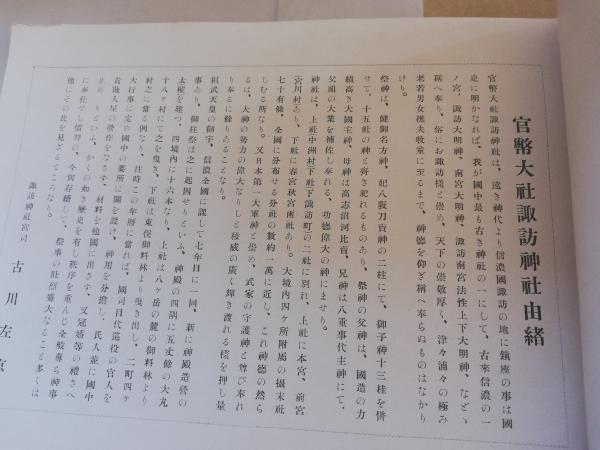 官幣大社諏訪神社由緒
官幣大社諏訪神社は、遠き神代より信濃國諏訪の地に鎮座の事は國
史に明かなれば、我が國中最も古き神社の一にして、古來信濃の一
ノ宮、諏訪大明神、南宮大明神、諏訪南宮法性上下大明神、などゝ
稱へ奉り、俗にお諏訪様と崇め、天下の崇敬厚く、津々浦々の極み
老若男女樵夫牧童に至るまで、神德を仰ぎ稱へ奉らぬものはなかり
けり。
祭神は、健御名方神、妃八坂刀賣神の二柱にて、御子神十三柱を併
せて、十五社の神と齊き祀れるものあり、祭神の父神は、國造の力
績高き大國主神、母神は高志沼河比賣、兄神は八重事代主神にて、
父祖の大業を補佐し奉れる、功德偉大の神にませり。
神社は、上社中洲村下社下諏訪町の二社に別れ、上社に本宮、前宮
(宮川村)あり、下社に春宮秋宮兩社あり。大境內四ヶ所附屬の攝末社
七十有餘、全國に分布せる分社の數約一萬に近し、これ神德の然ら
しむる所なり。又日本第一大軍神と崇め、武家の守護神と尊び奉れ
るは、大神の努力の偉大なりしと稜威の廣く輝き渡れる樣を押し量
り奉るに餘りあることなり。
桓武天皇の御宇、信濃全國に課して七年目に一回、新に神殿造營の
事あり、御柱祭は之に起因せりといふ、神殿の四隅に五丈餘の大丸
太樅を建つ、四境內に十六本なり、上社は八ヶ岳の麓の御料林より
十八ヶ村にて之を曳き、下社は東俣御料林より曳き出し、二町四ヶ
村之に當る例なり、往時この年曆に當れば、國司目代巡役の官人を
大行事に定め國中の要所に關を設け、神用を分擔し、氏人並に國中
貴賤人屋の營作をなさず、材料を他國に出さず、又冠婚等の禮さへ
止めりといふ、かくの如き歷史を有し秩序を重んじ全敬專ら神事
に奉仕せし慣習の、今尙存續して、祭事の壯烈盛大なること多くは
他にその比を見ざるところなり。
諏訪神社宮司
古川左京